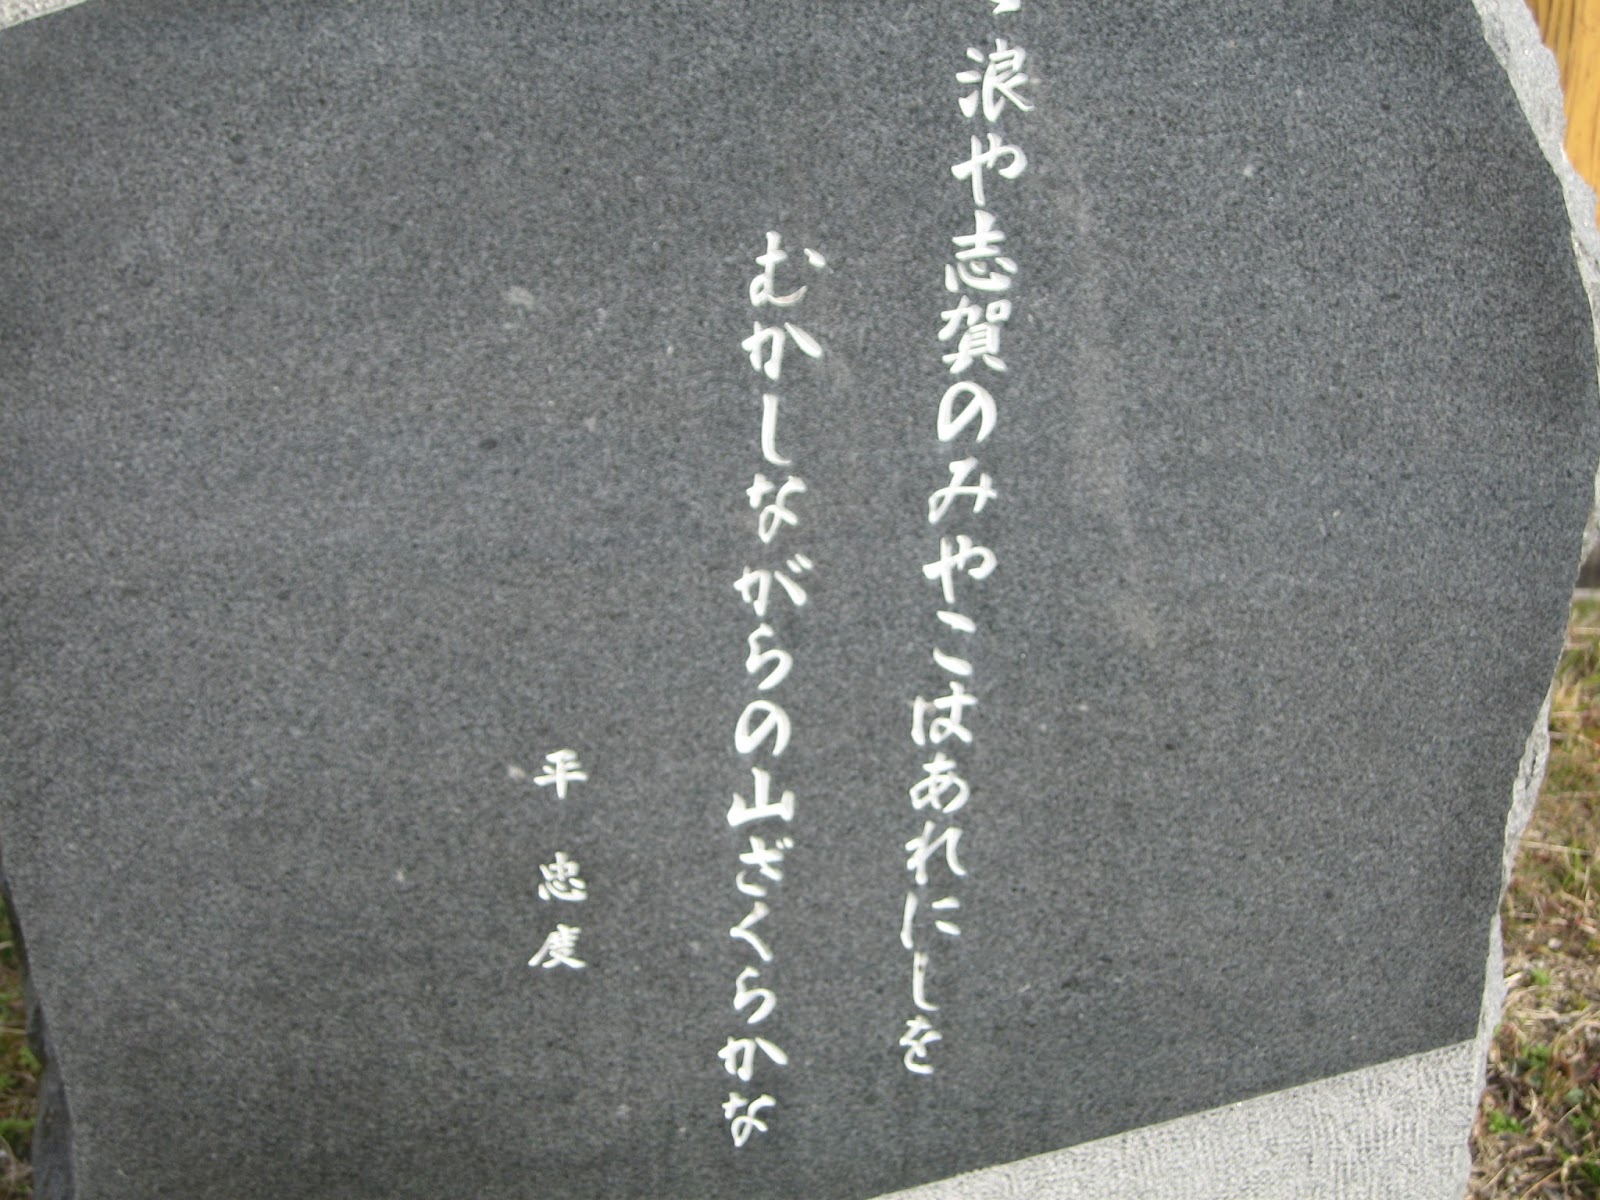 浪や志賀のみやこはあれにしを
むかしながらの山ざくらかな
平忠度